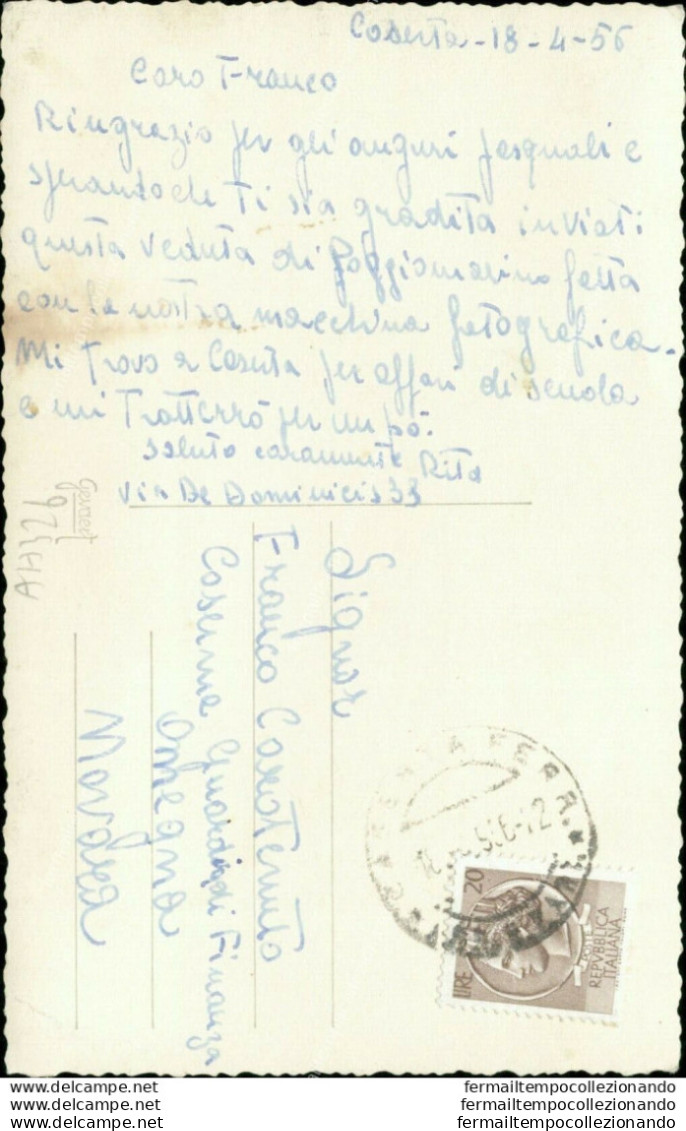 Caserta - 18-4-56
Caro Franco
Ringrazio per gli auguri pasquali e
sperando che Ti sia gradita inviati
questa veduta di Poggiomarino fatta
con la nostra macchina fotografica.
Mi trovo a Caserta per affari di scuola
e mi Tratterrò per un pò.
saluto caramente Rita
via De Dominicis 33
Signor
Franco Carotenuto
Caserma Guardia di Finanza
Omegna
Novara
Gevaert
AH326
CASERTA FERR.
20
LIRE
REPVBBLICA
ITALIANA
www.delcampe.net
www.delcampe.net
www.delcampe.net
fermailtempocollezionando
fermailtempocollezionando
fermailtempocollezionando